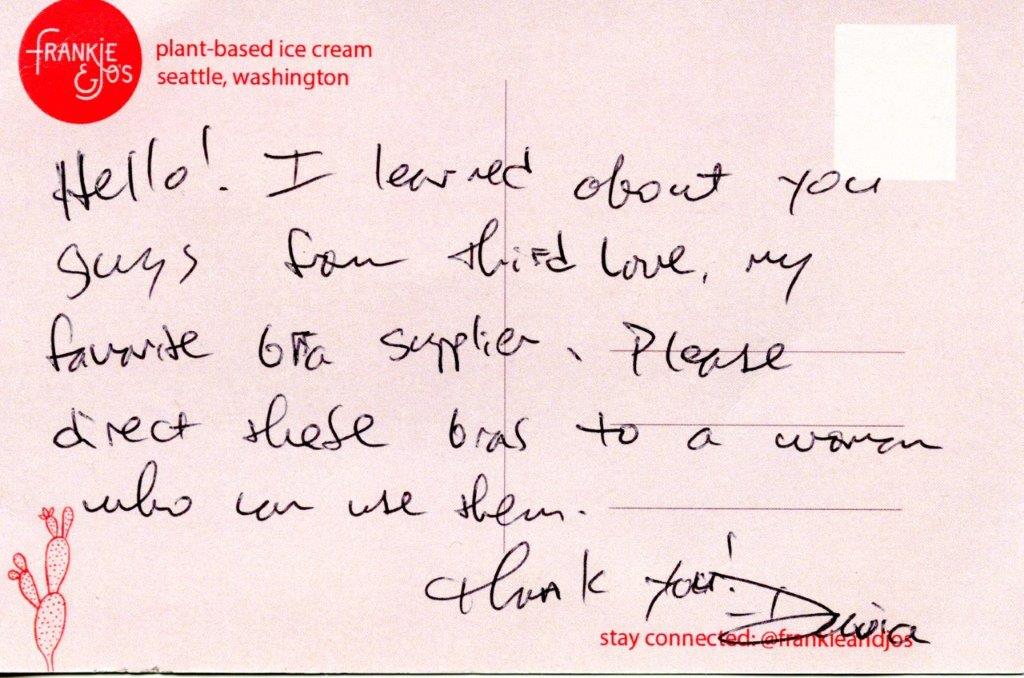 FRANKIE
& JO'S
plant-based ice cream
seattle, washington
Hello! I learned about you
guys from third love, my
favorite bra supplier. Please
direct these bras to a woman
who can use them.
Thank you!
stay connected: @frankieandjos